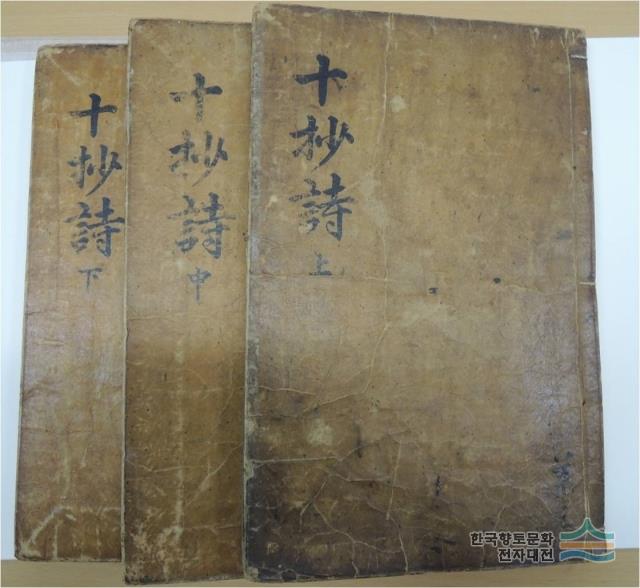 十抄詩 上
十抄詩 中
十抄詩 下
한국향토문화
전자대전